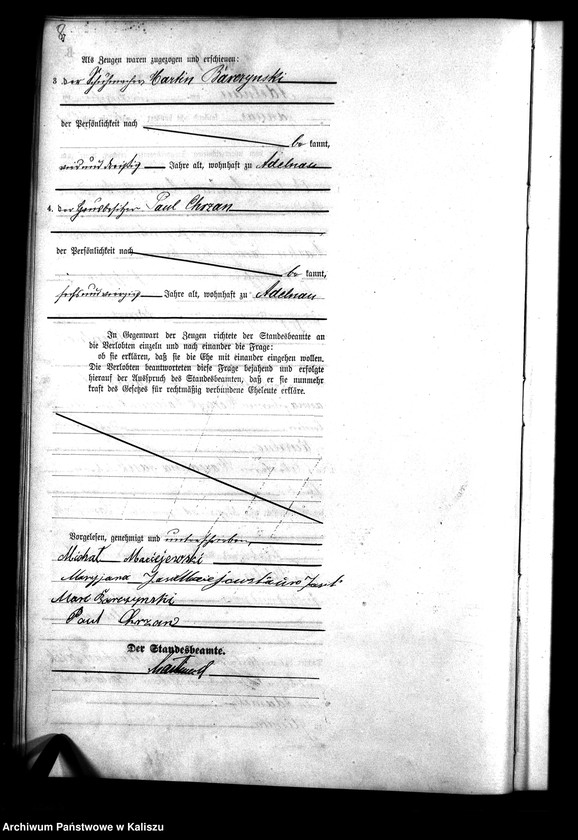 8
Als Zeugen waren zugezogen und erschienen:
3 der Schuhmacher Martin Barczynski
der Persönlichkeit nach
be kannt,
vierunddreißig Jahre alt, wohnhaft zu Adelnau
4. der Hausbesitzer Paul Chrzan
der Persönlichkeit nach
be kannt,
sechsundvierzig Jahre alt, wohnhaft zu Adelnau
In Gegenwart der Zeugen richtete der Standesbeamte an
die Verlobten einzeln und nach einander die Frage:
ob sie erklären, daß sie die Ehe mit einander eingehen wollen.
Die Verlobten beantworteten diese Frage bejahend und erfolgte
hierauf der Ausspruch des Standesbeamten, daß er sie nunmehr
kraft des Gesetzes für rechtmäßig verbundene Eheleute erkläre.
Vorgelesen, genehmigt und unterschrieben,
Michał Maciejewski
Maryjana
Barczynski
Paul Chrzan
Der Standesbeamte.
Archiwum Państwowe w Kaliszu